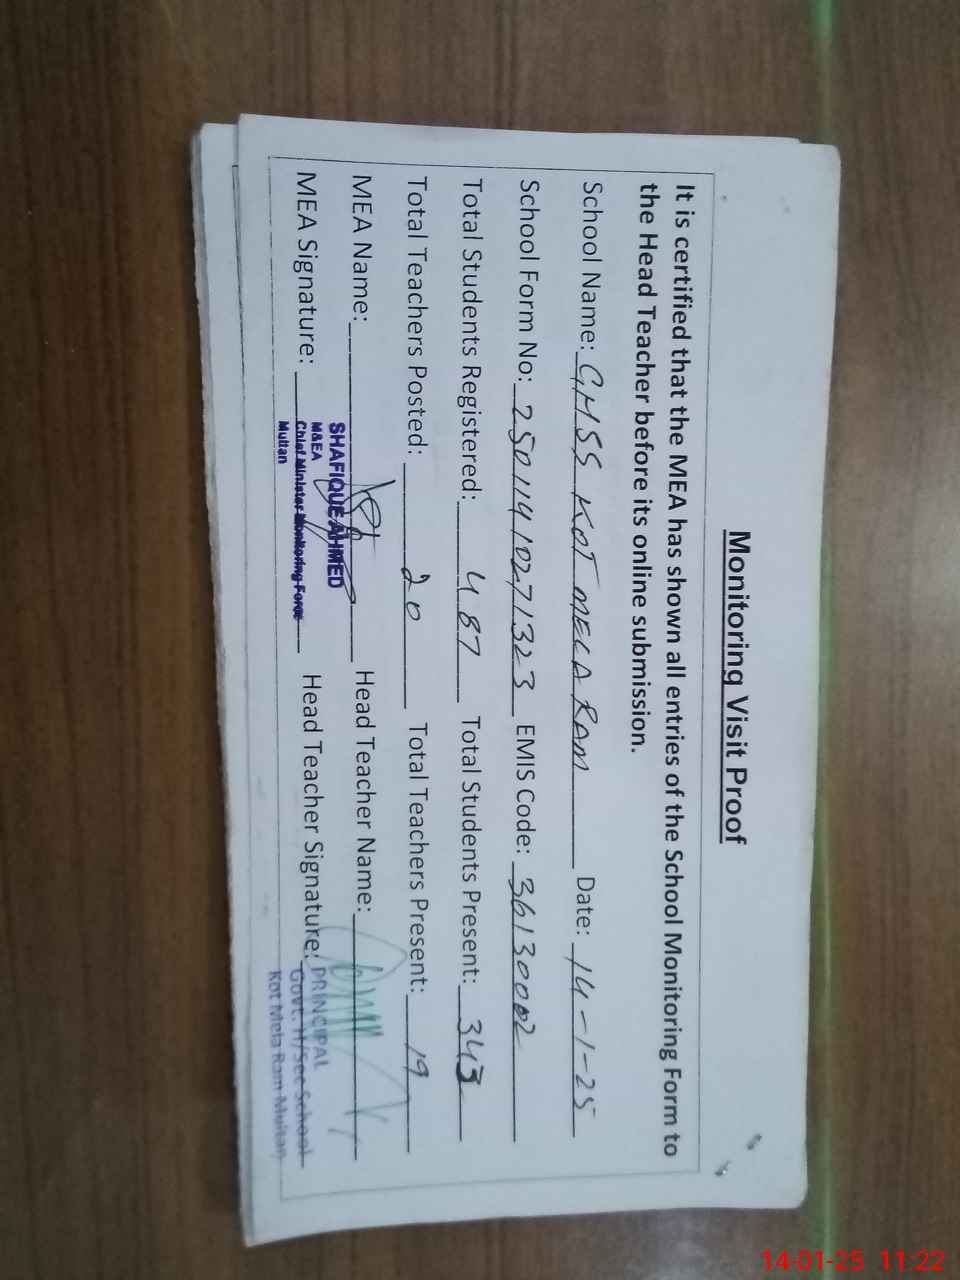 Monitoring Visit Proof
It is certified that the MEA has shown all entries of the School Monitoring Form to
the Head Teacher before its online submission.
School Name: GHSS KOT MELA RAM Date: 14-1-25
School Form No: 25011410271323 EMIS Code: 36130002
Total Students Registered: 487 Total Students Present: 343
Total Teachers Posted: 20 Total Teachers Present: 19
MEA Name: Head Teacher Name:
SHAFIQUE AHMED
MEA Signature: Head Teacher Signature:
M&EA
Chief Minister Monitoring Force
Multan
PRINCIPAL
Govt. H/Sec School
Kot Mela Ram Multan
14-01-25 11:22